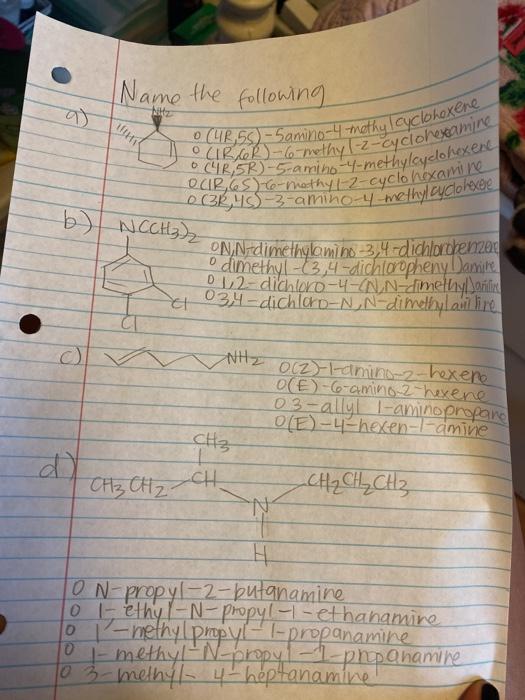 Name the following
a)
NH2
O (4R,5S)-5amino-4-methylcyclohexene
O (1R,6R)-6-methyl-2-cyclohexamine
O (4R,5R)-5-amino-4-methylcyclohexene
O (1R,6S)-6-methyl-2-cyclohexamine
O (3R,4S)-3-amino-4-methylcyclohexene
b) N(CH3)2
O N,N-dimethylamino-3,4-dichlorobenzene
O dimethyl-(3,4-dichlorophenyl)amine
O 1,2-dichloro-4-(N,N-dimethyl)aniline
Cl O 3,4-dichloro-N,N-dimethylaniline
Cl
c) NH2
O (Z)-1-amino-2-hexene
O (E)-6-amino-2-hexene
O 3-allyl 1-aminopropane
O (E)-4-hexen-1-amine
d) CH3
CH3CH2 CH CH2CH2CH3
N
H
O N-propyl-2-butanamine
O 1-ethyl-N-propyl-1-ethanamine
O 1'-methylpropyl-1-propanamine
O 1-methyl-N-propyl-1-propanamine
O 3-methyl-4-heptanamine